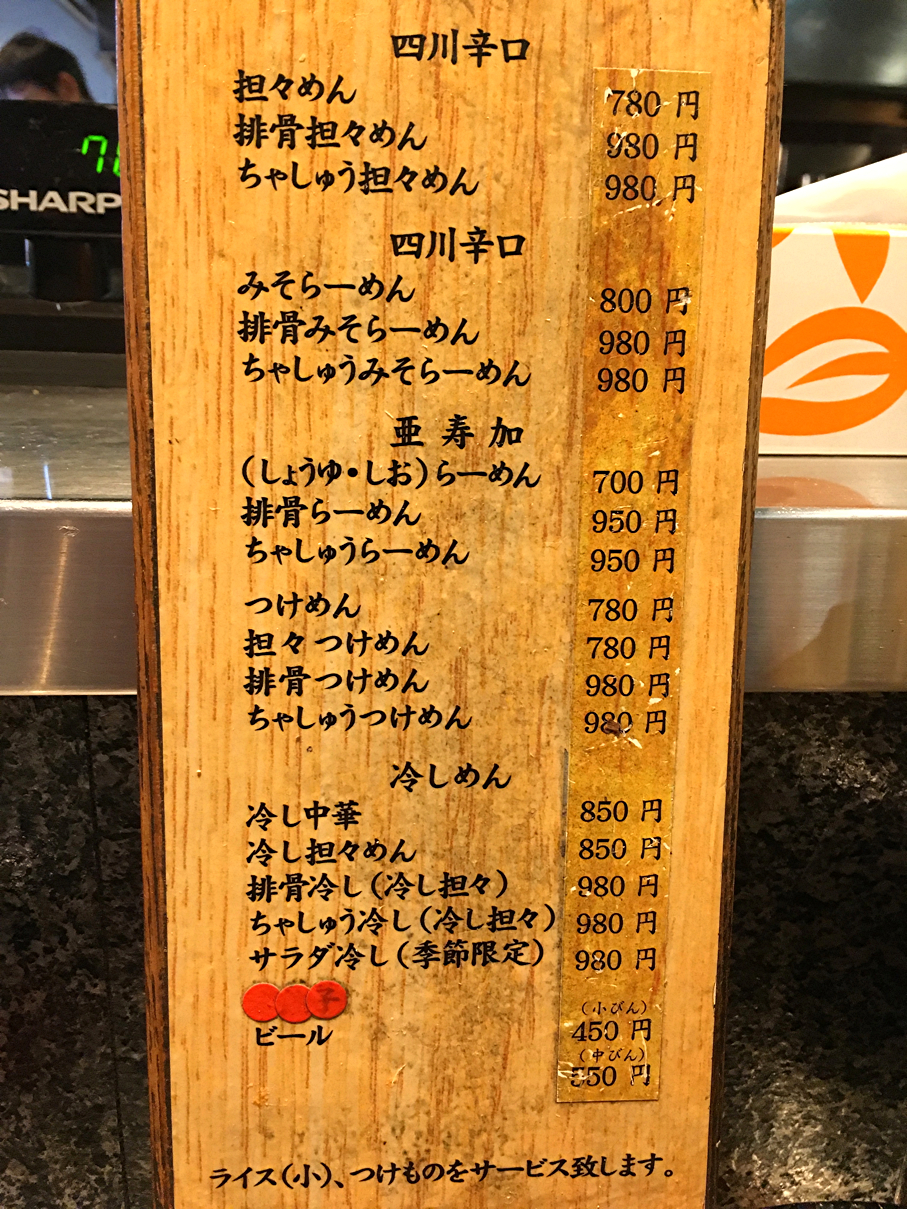 四川辛口
担々めん 780 円
排骨担々めん 980 円
ちゃしゅう担々めん 980 円
四川辛口
みそらーめん 800 円
排骨みそらーめん 980 円
ちゃしゅうみそらーめん 980 円
亜寿加
(しょうゆ・しお)らーめん 700 円
排骨らーめん 950 円
ちゃしゅうらーめん 950 円
つけめん 780 円
担々つけめん 780 円
排骨つけめん 980 円
ちゃしゅうつけめん 980 円
冷しめん
冷し中華 850 円
冷し担々めん 850 円
排骨冷し(冷し担々) 980 円
ちゃしゅう冷し(冷し担々) 980 円
サラダ冷し(季節限定) 980 円
子
(小びん)
ビール 450 円
(中びん)
550 円
ライス(小)、つけものをサービス致します。
SHARP